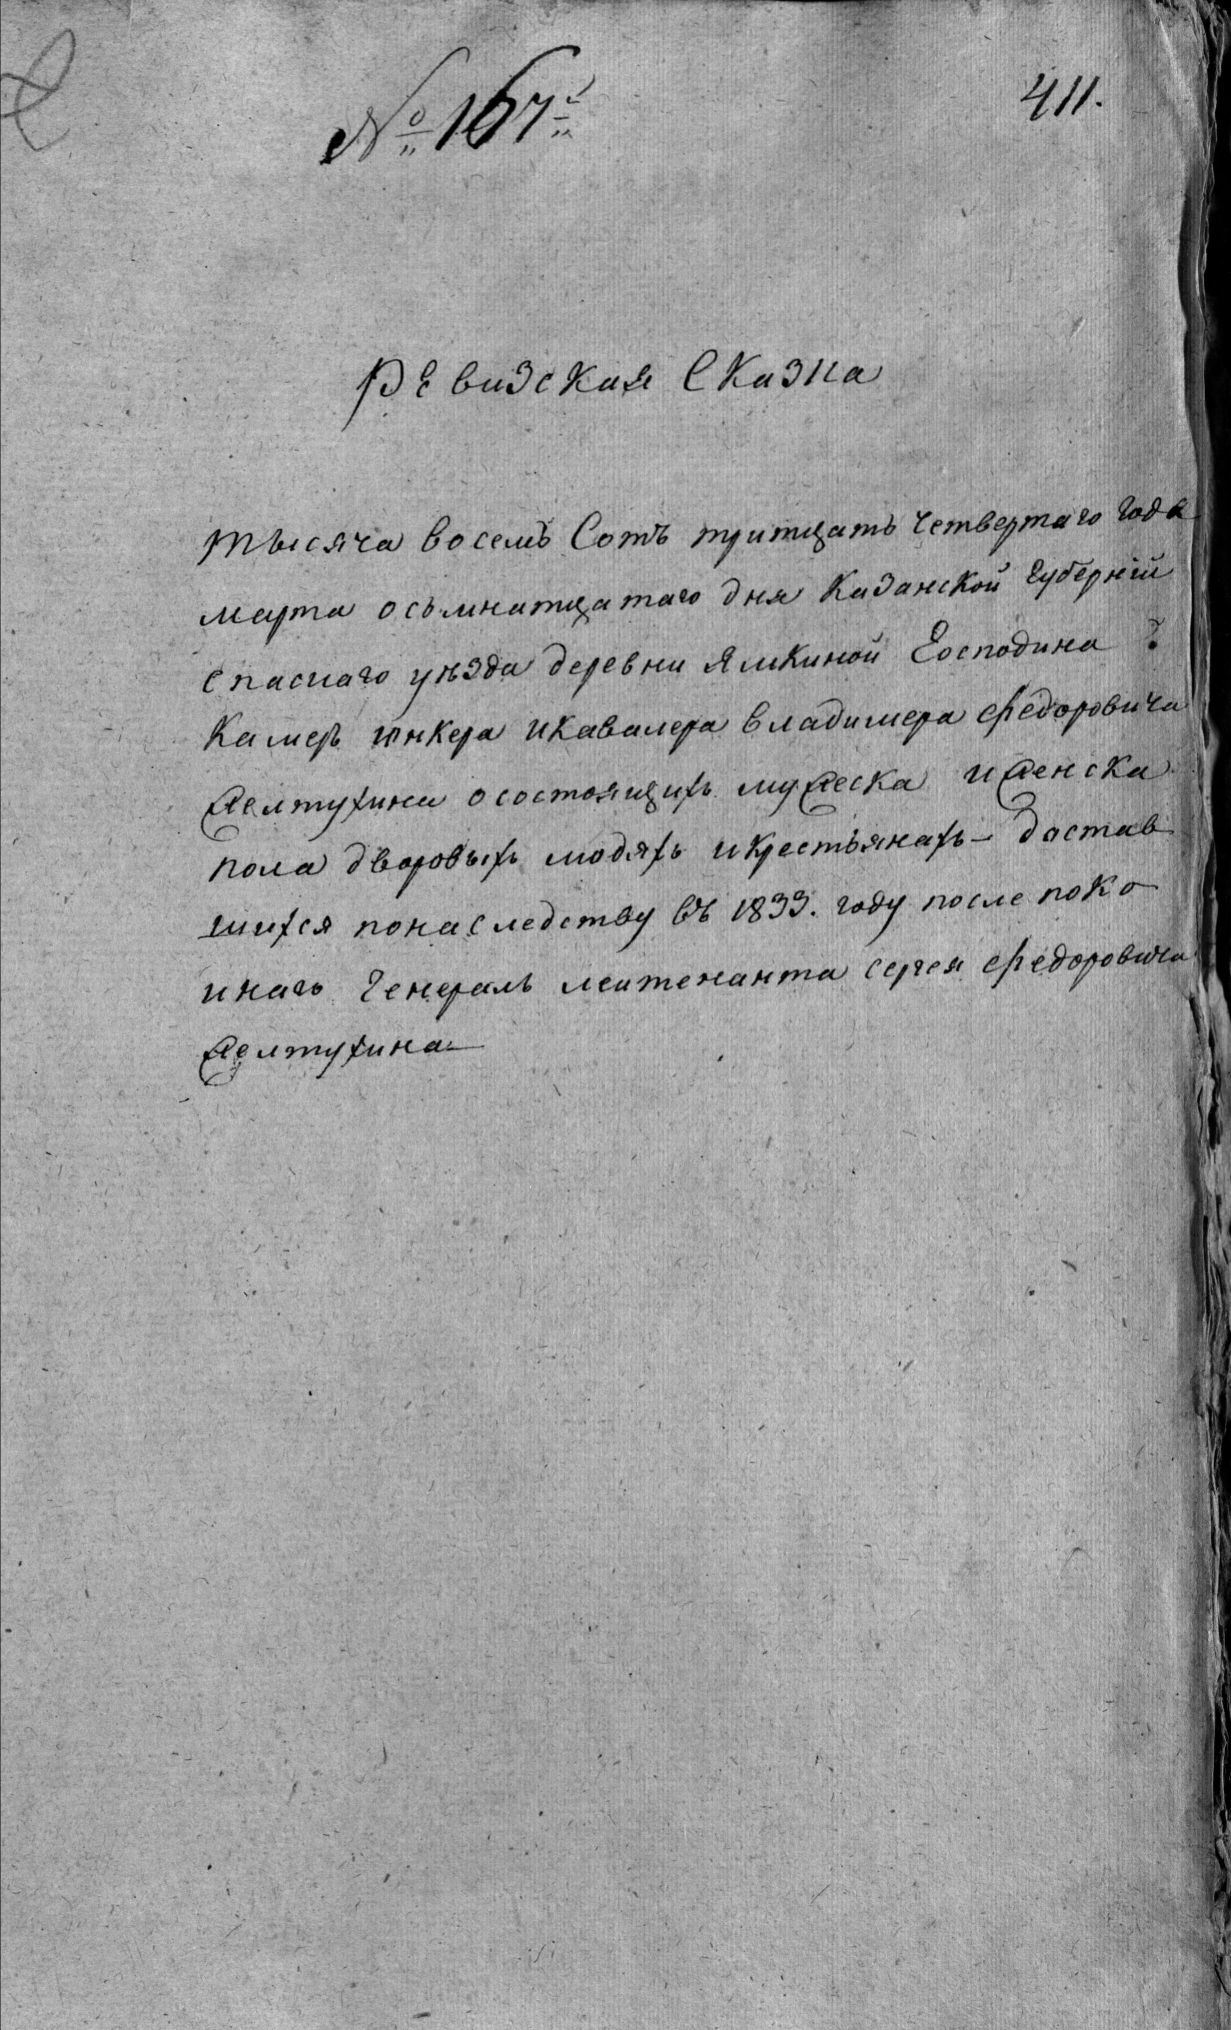 № 167й
411.
Ревизская Сказка
тысяча восемь Сотъ тритцать четвертаго года
марта осьмнатцатаго дня Казанской губерній
спаскаго уезда деревни Ямкиной Господина
Камеръ юнкера икавалера владимера Федоровича
Желтухина осостоящихъ мужеска иженска
пола дворовыхъ людяхъ икрестьянахъ – достав
шихся понаследству въ 1833. году после поко
инаго Генералъ леитенанта сергея Федоровича
Желтухина